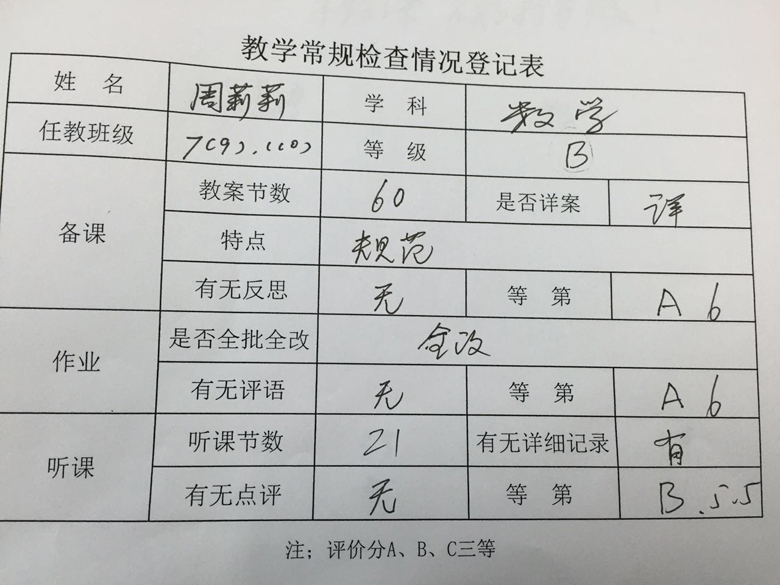 教学常规检查情况登记表
姓 名 周莉莉 学 科 数学
任教班级 7(9)、(10) 等 级 B
备课 教案节数 60 是否详案 详
特点 规范
有无反思 无 等 第 A 6
作业 是否全批全改 全改
有无评语 无 等 第 A 6
听课 听课节数 21 有无详细记录 有
有无点评 无 等 第 B.5.5
注；评价分A、B、C三等